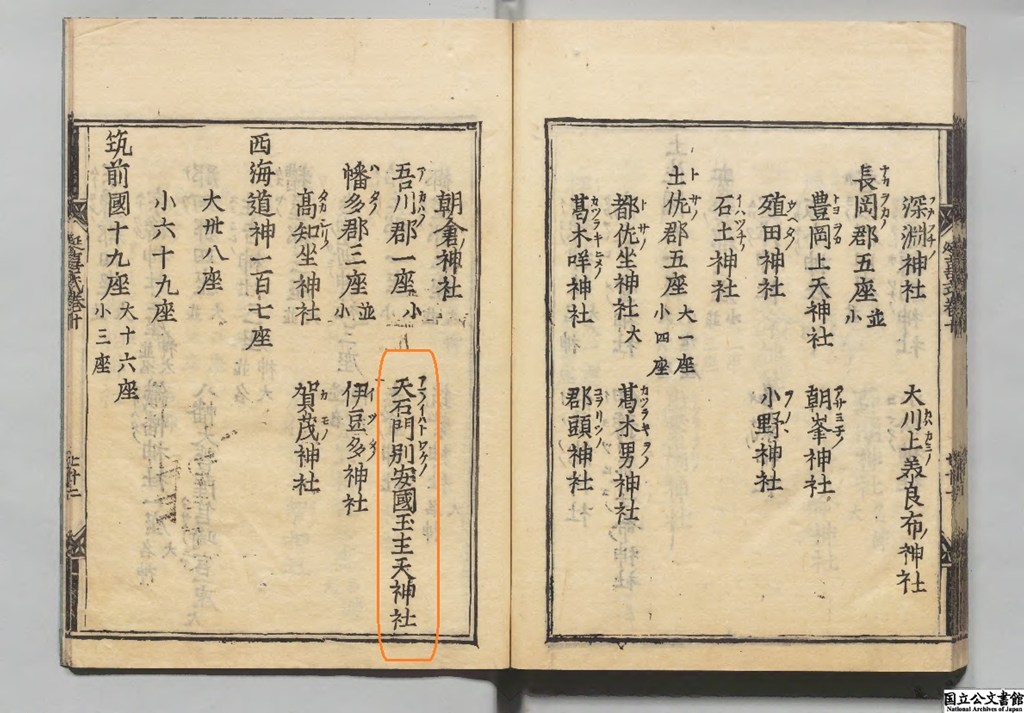 深淵神社 大川上美良布神社
長岡郡五座並小
豊岡上天神社 朝峯神社
殖田神社 小野神社
石土神社
土佐郡五座大一座小四座
都佐坐神社大 葛木男神社
葛木咩神社 郡頭神社
朝倉神社
吾川郡一座小 天石門別安國玉主天神社
幡多郡三座並小 伊豆多神社
高知坐神社 賀茂神社
西海道神一百七座
大卅八座
小六十九座
筑前國十九座大十六座小三座
国立公文書館
National Archives of Japan